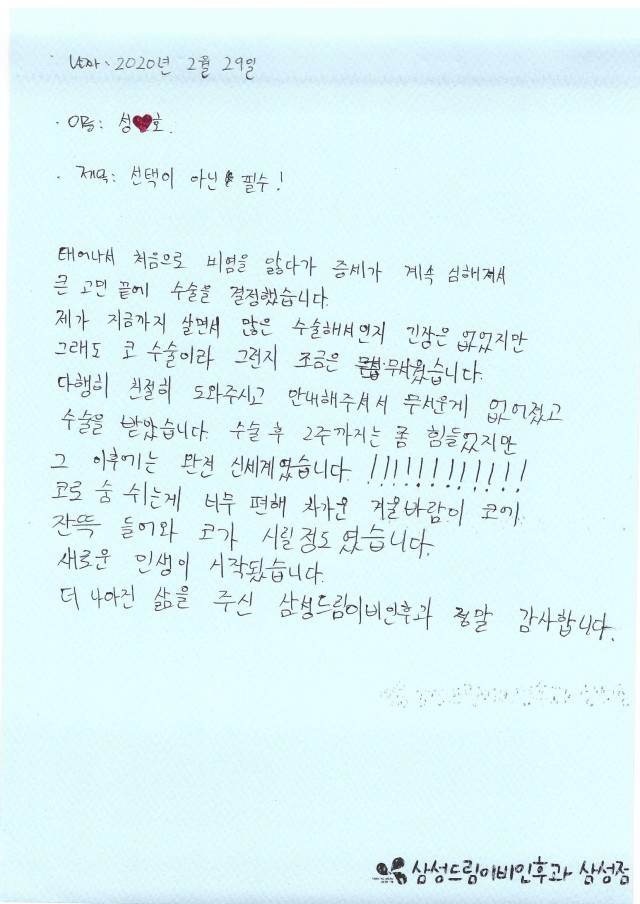 · 날짜: 2020년 2월 29일
· 이름: 성♥호.
· 제목: 선택이 아닌 필수!
태어나서 처음으로 비염을 앓다가 증세가 계속 심해져서
큰 고민 끝에 수술을 결정했습니다.
제가 지금까지 살면서 많은 수술해서인지 긴장은 없었지만
그래도 코 수술이라 그런지 조금은 무서웠습니다.
다행히 친절히 도와주시고 안내해주셔서 무서운게 없어졌고
수술을 받았습니다. 수술 후 2주까지는 좀 힘들었지만
그 이후에는 완전 신세계였습니다. !!!!!!!!!!!!
코로 숨 쉬는게 너무 편해 차가운 겨울바람이 코에
잔뜩 들어와 코가 시릴정도였습니다.
새로운 인생이 시작됐습니다.
더 나아진 삶을 주신 삼성드림이비인후과 정말 감사합니다.
삼성드림이비인후과 삼성점